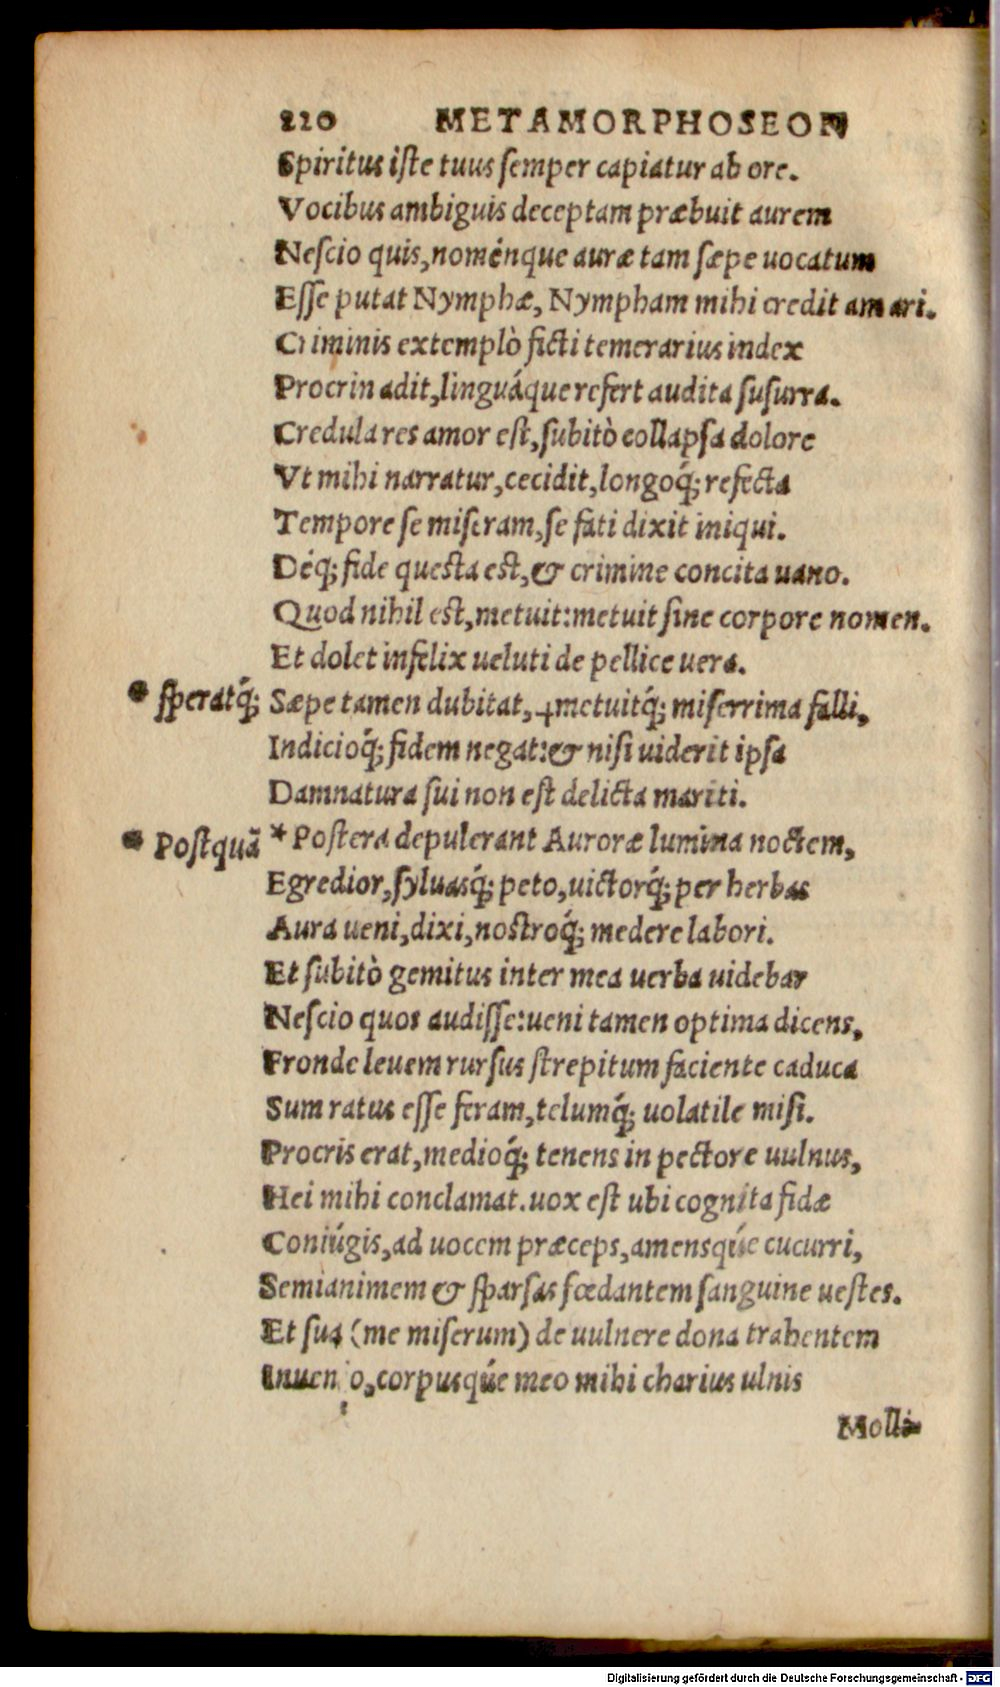 220 METAMORPHOSEON
Spiritus iste tuus semper capiatur ab ore.
Vocibus ambiguis deceptam præbuit aurem
Nescio quis, noménque auræ tam sæpe uocatum
Esse putat Nymphæ, Nympham mihi credit amari.
Criminis extemplò ficti temerarius index
Procrin adit, linguáque refert audita susurra.
Credula res amor est, subitò collapsa dolore
Vt mihi narratur, cecidit, longoq́; refecta
Tempore se miseram, se fati dixit iniqui.
Déq; fide questa est, & crimine concita uano.
Quod nihil est, metuit: metuit sine corpore nomen.
Et dolet infelix ueluti de pellice uera.
* speratq́; Sæpe tamen dubitat, +metuitq́; miserrima falli,
Indicioq́; fidem negat: & nisi uiderit ipsa
Damnatura sui non est delicta mariti.
* Postquã *Postera depulerant Auroræ lumina noctem,
Egredior, syluasq́; peto, uictorq́; per herbas
Aura ueni, dixi, nostroq́; medere labori.
Et subitò gemitus inter mea uerba uidebar
Nescio quos audisse: ueni tamen optima dicens,
Fronde leuem rursus strepitum faciente caduca
Sum ratus esse feram, telumq́; uolatile misi.
Procris erat, medioq́; tenens in pectore uulnus,
Hei mihi conclamat. uox est ubi cognita fidæ
Coniúgis, ad uocem præceps, amensqúe cucurri,
Semianimem & sparsas fœdantem sanguine uestes.
Et sua (me miserum) de uulnere dona trahentem
Inuenio, corpusqúe meo mihi charius ulnis
Molli-
Digitalisierung gefördert durch die Deutsche Forschungsgemeinschaft - DFG